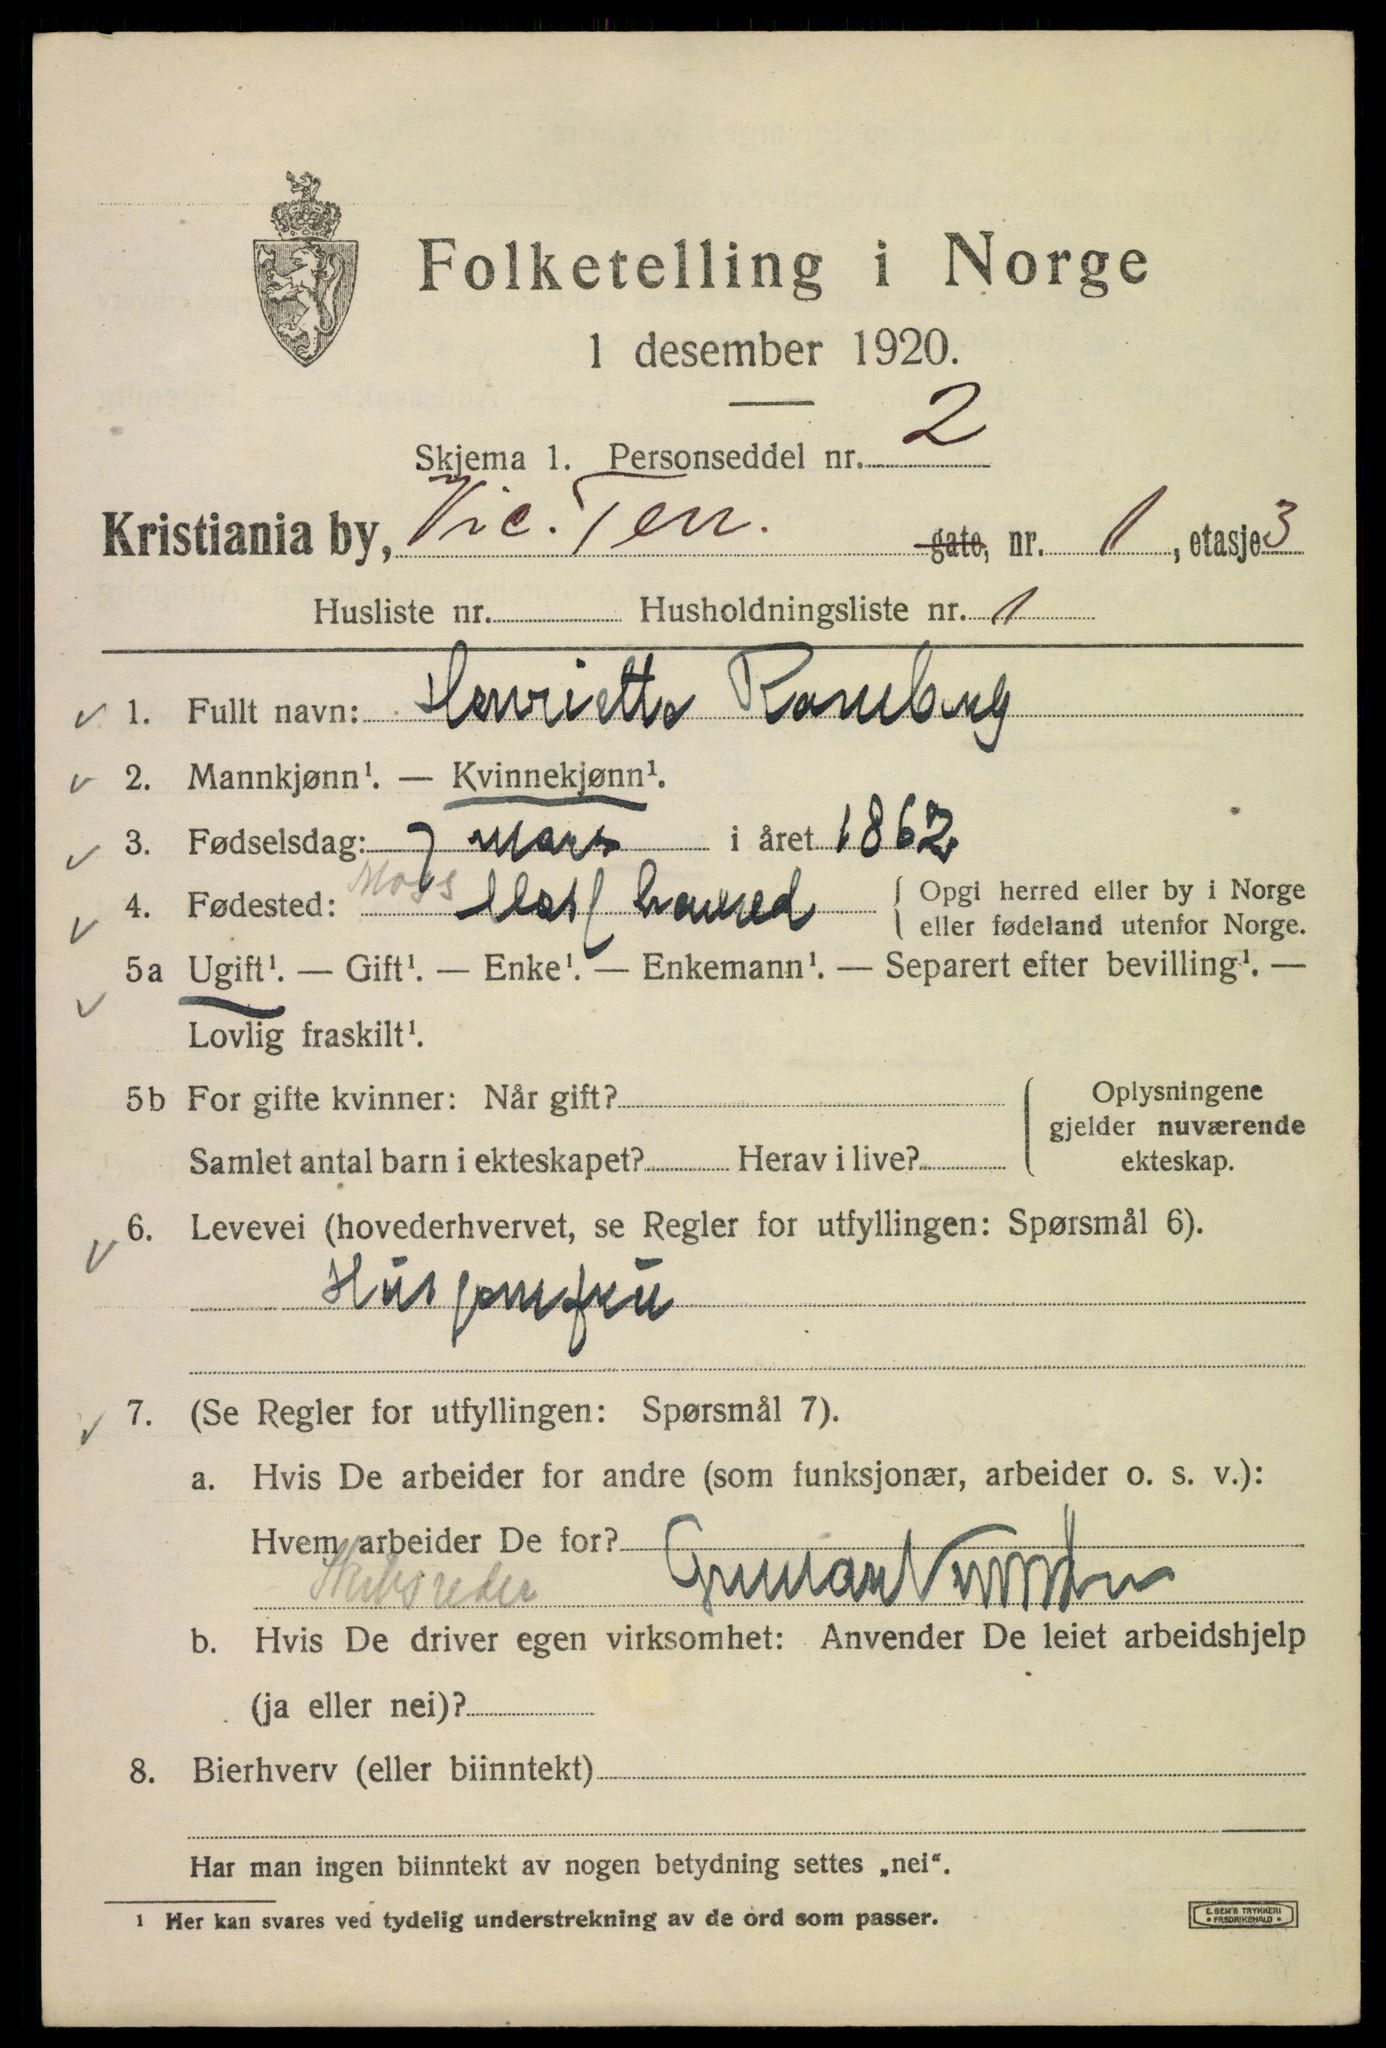 Folketelling i Norge
1 desember 1920.
Skjema 1. Personseddel nr. 2
Kristiania by, Vic. Terr. gate, nr. 1, etasje 3
Husliste nr. Husholdningsliste nr. 1
1. Fullt navn: Henriette Ramberg
2. Mannkjønn¹. — Kvinnekjønn¹.
3. Fødselsdag: 7 Mars i året 1862
4. Fødested: Moss herred { Opgi herred eller by i Norge
eller fødeland utenfor Norge.
5a Ugift¹. — Gift¹. — Enke¹. — Enkemann¹. — Separert efter bevilling¹. —
Lovlig fraskilt¹.
5b For gifte kvinner: Når gift? Oplysningene
gjelder nuværende
Samlet antal barn i ekteskapet? Herav i live? ekteskap.
6. Levevei (hovederhvervet, se Regler for utfyllingen: Spørsmål 6).
Husjomfru
7. (Se Regler for utfyllingen: Spørsmål 7).
a. Hvis De arbeider for andre (som funksjonær, arbeider o. s. v.):
Hvem arbeider De for? Gunnar
Skibsreder
b. Hvis De driver egen virksomhet: Anvender De leiet arbeidshjelp
(ja eller nei)?
8. Bierhverv (eller biinntekt)
Har man ingen biinntekt av nogen betydning settes „nei“.
1 Her kan svares ved tydelig understrekning av de ord som passer.
E. SEM'S TRYKKERI
• FREDRIKSHALD •